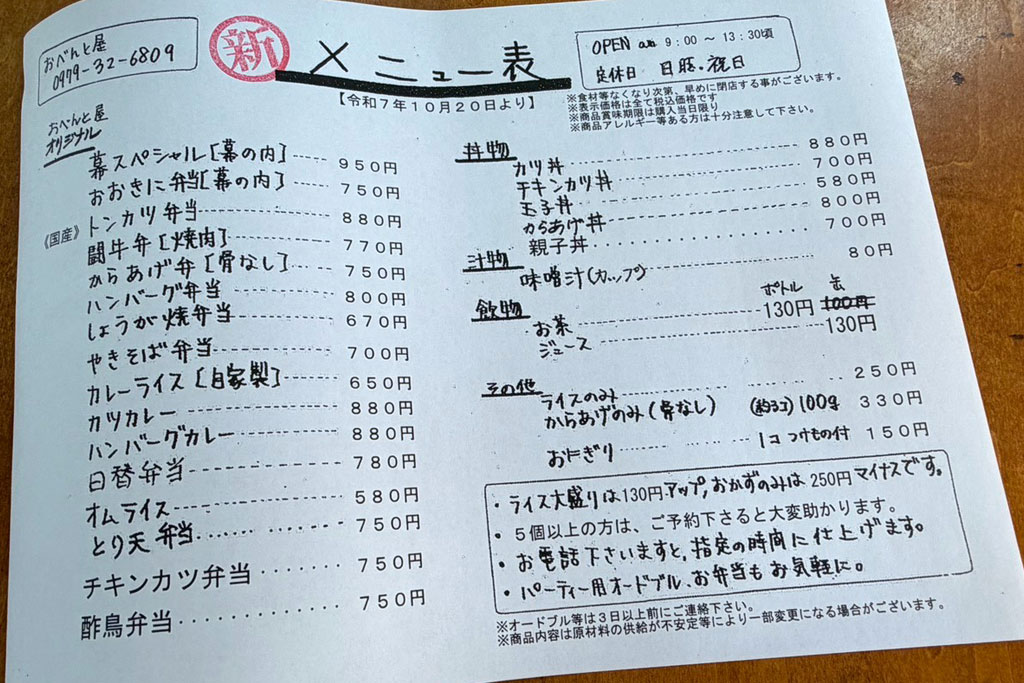 おべんと屋
0979-32-6809
新
メニュー表
【令和7年10月20日より】
OPEN a.m. 9:00 ～ 13:30頃
定休日 日曜・祝日
※食材等なくなり次第、早めに閉店する事がございます。
※表示価格は全て税込価格です
※商品賞味期限は購入当日限り
※商品アレルギー等ある方は十分注意して下さい。
おべんと屋
オリジナル
幕スペシャル[幕の内] 950円
おおきに弁当[幕の内] 750円
《国産》トンカツ弁当 880円
闘牛弁[焼肉] 770円
からあげ弁[骨なし] 750円
ハンバーグ弁当 800円
しょうが焼弁当 670円
やきそば弁当 700円
カレーライス[自家製] 650円
カツカレー 880円
ハンバーグカレー 880円
日替弁当 780円
オムライス 580円
とり天弁当 750円
チキンカツ弁当 750円
酢鳥弁当 750円
丼物
カツ丼 880円
チキンカツ丼 700円
玉子丼 580円
からあげ丼 800円
親子丼 700円
汁物
味噌汁(カップ) 80円
飲物
ボトル 缶
お茶 130円 100円
ジュース 130円
その他
ライスのみ 250円
からあげのみ(骨なし) (約3コ)100g 330円
おにぎり 1コ つけもの付 150円
・ライス大盛りは130円アップ,おかずのみは250円マイナスです。
・5個以上の方は、ご予約下さると大変助かります。
・お電話下さいますと、指定の時間に仕上げます。
・パーティー用オードブル、お弁当もお気軽に。
※オードブル等は3日以上前にご連絡下さい。
※商品内容は原材料の供給が不安定等により一部変更になる場合がございます。